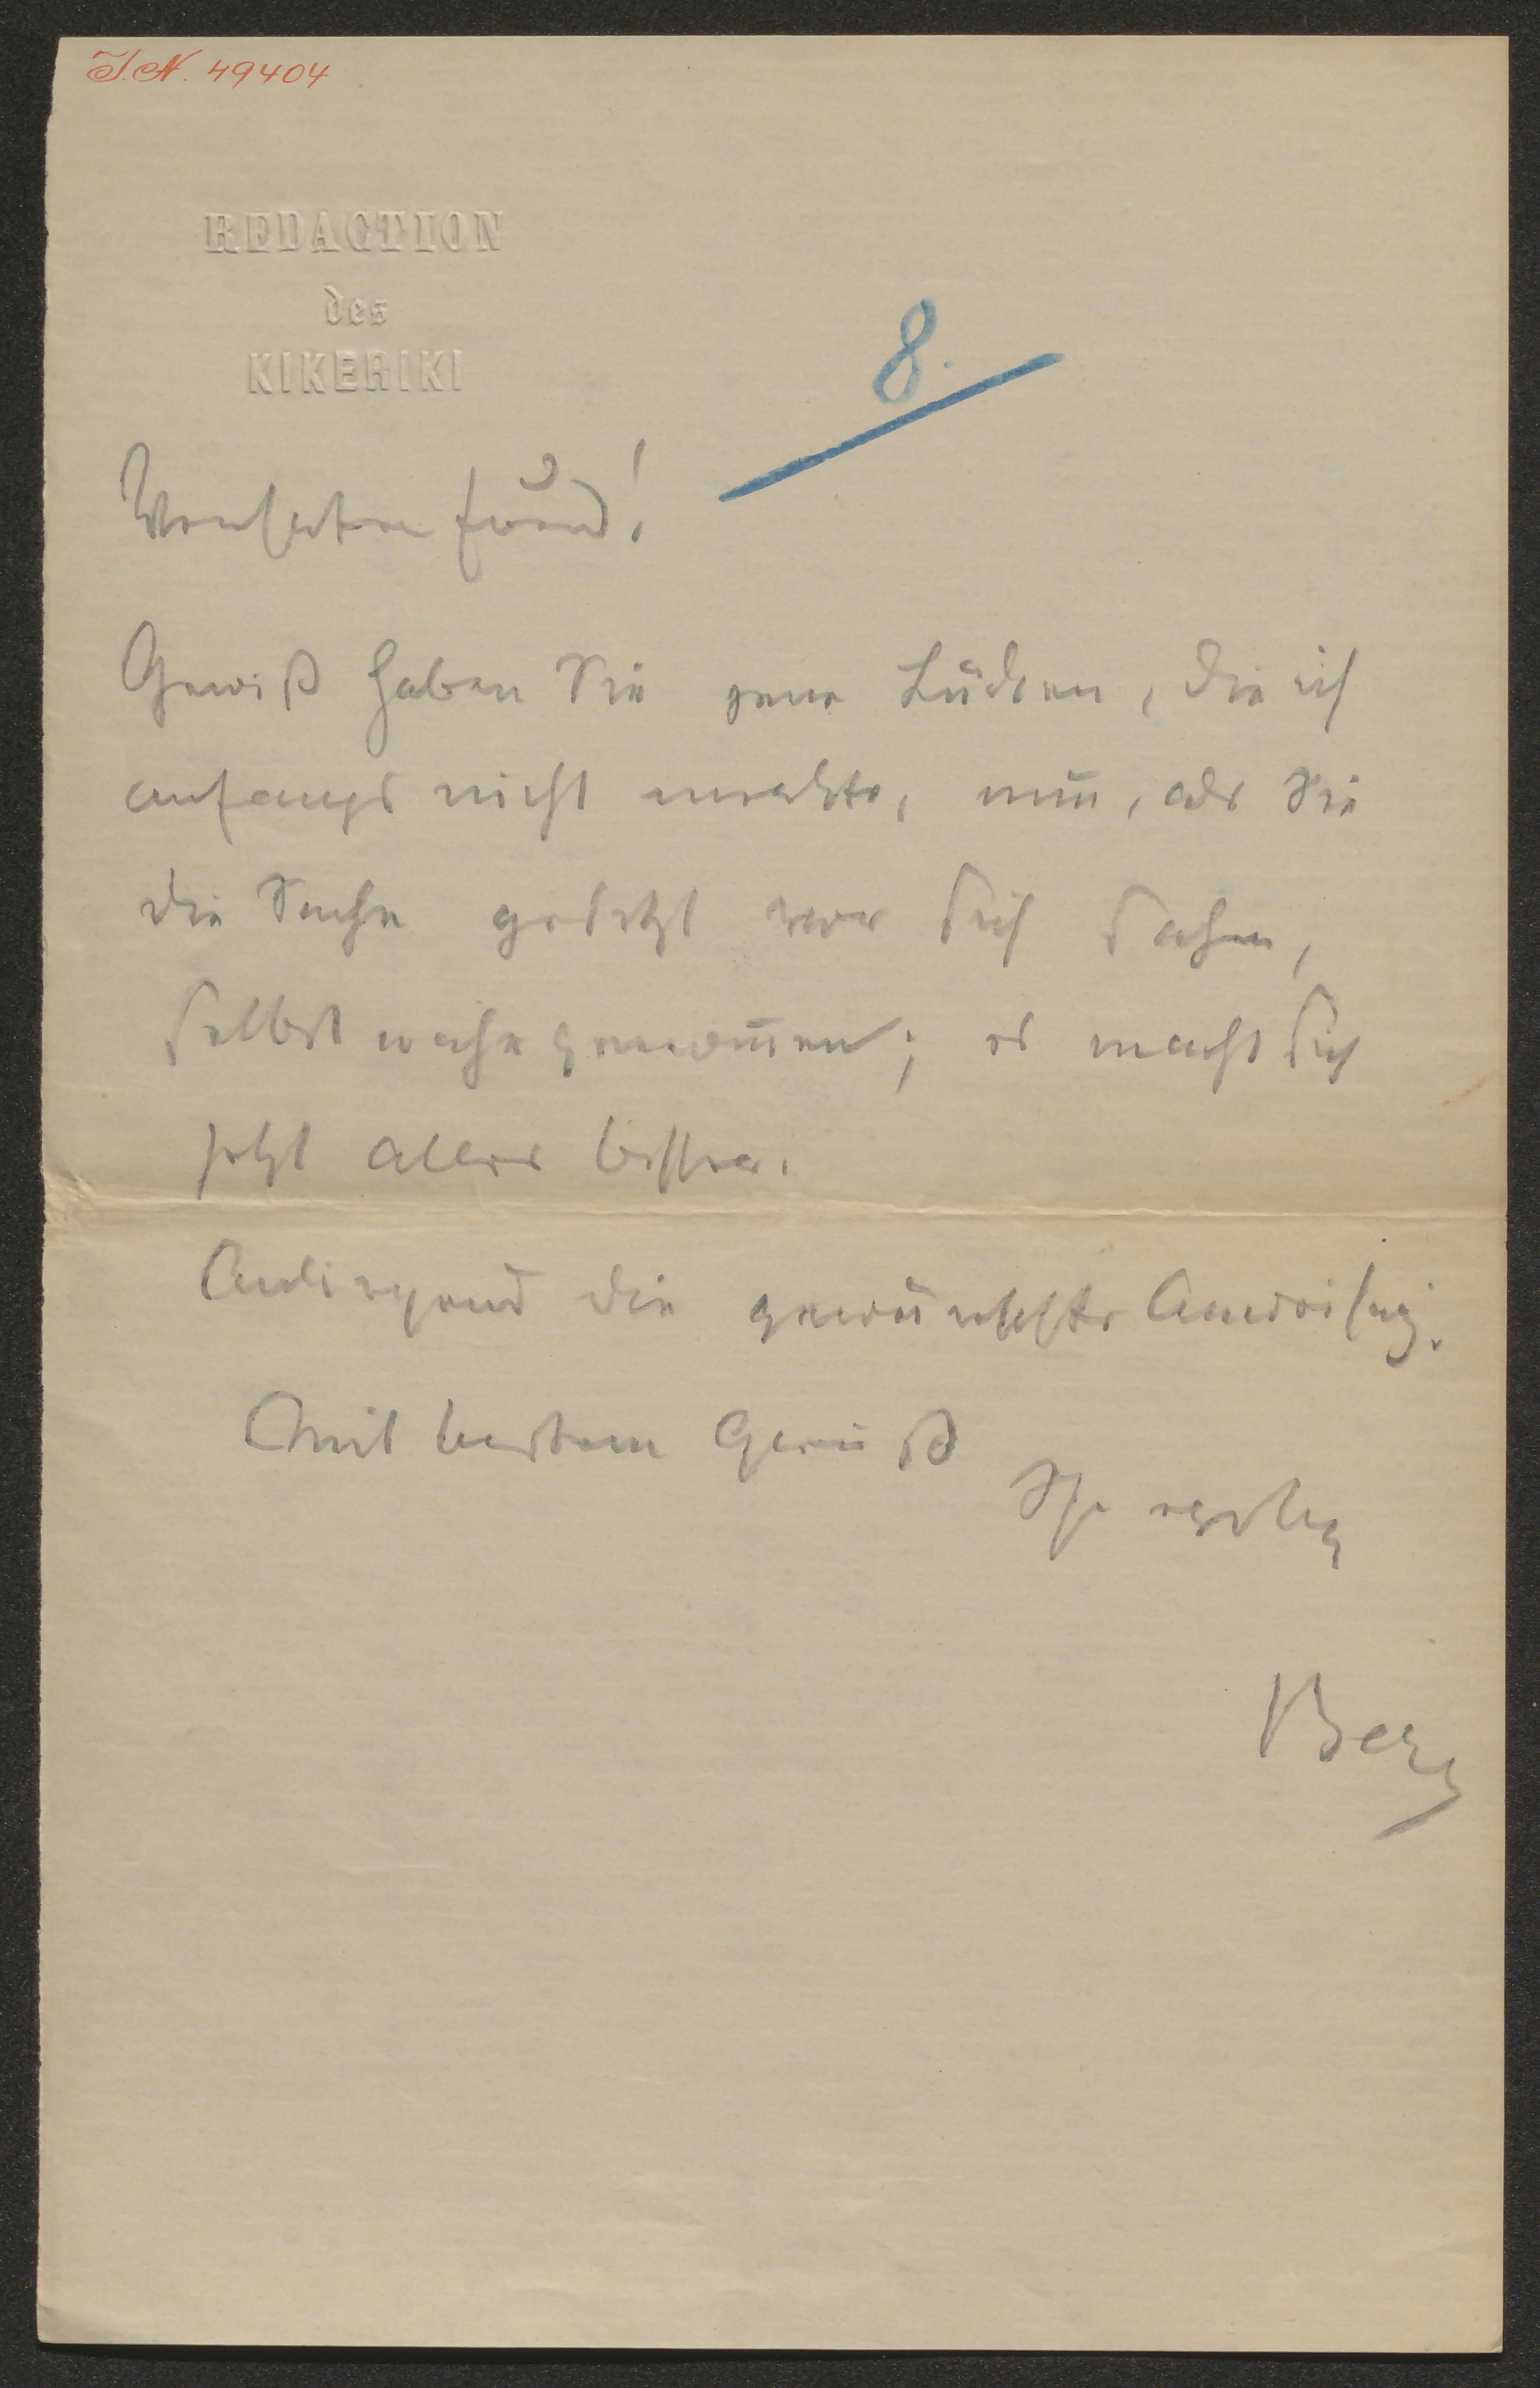 I.N. 49404
REDACTION
des
KIKERIKI
8.
Verehrter Freund!
Gewiß haben Sie jene Lücken, die ich
anfangs nicht merkte, nun, als Sie
die Sache gesetzt vor sich sahen,
selbst wahrgenom̅en; es macht sich
jetzt alles besser.
Anliegend die gewünschte Anweisung.
Mit bestem Gruß
Ihr
Berg